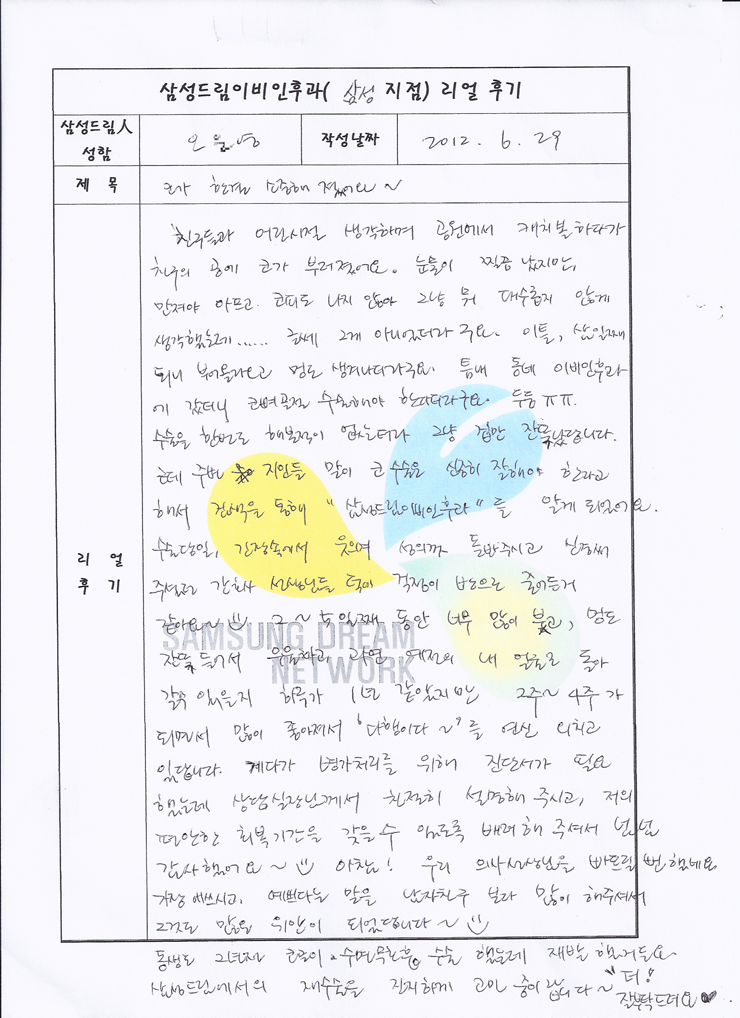 삼성드림이비인후과( 삼성 지점) 리얼 후기
삼성드림人
성함
오
작성날짜
2012. 6. 29
제 목
코가 한결 소중해 졌어요~
리 얼
후 기
친구들과 어린시절 생각하며 공원에서 캐치볼하다가
친구의 공에 코가 부러졌어요. 눈물이 찔끔 났지만,
만져야 아프고 코피도 나지 않아 그냥 뭐 대수롭지 않게
생각했는데...... 글쎄 그게 아니었더라구요. 이틀, 삼일째
되니 부어올라오고 멍도 생겨나더라구요. 틈내 동네 이비인후과
에 갔더니 코뼈골절 수술해야 한다더라구요. 두둥 ㅠㅠ.
수술을 한번도 해본적이 없는터라 그냥 겁만 잔뜩났답니다.
근데 주변 지인들 말이 코 수술을 신중히 잘해야 한다고
해서 검색을 통해 "삼성드림이비인후과"를 알게 되었어요.
수술당일, 긴장속에서 웃으며 상의까 돌봐주시고 신경써
주셨던 간호사 선생님들 덕에 걱정이 반으로 줄어든거
같아요~ 2~4일째 동안 너무 많이 붓고, 멍도
잔뜩 들어서 우울하고, 과연 예전의 내 얼굴로 돌아
갈수 있을지 하루가 1년 같았지만 2주~4주가
되면서 많이 좋아져서 '다행이다~'를 연신 외치고
있답니다. 게다가 병가처리를 위해 진단서가 필요
했는데 상담실장님께서 친절히 설명해 주시고, 저의
편안한 회복기간을 갖을 수 있도록 배려해 주셔서 넘넘
감사했어요~ 아참! 우리 의사선생님을 빠뜨릴 뻔 했네요
가장 애쓰시고, 예쁘다는 말을 남자친구 보다 많이 해주셔서
그것도 많은 위안이 되었답니다~
동생도 2년전 코골이·수면무호흡 수술 했는데 재발 했거든요
삼성드림에서의 재수술을 진지하게 고민 중이랍니다~ "더!
잘부탁드려요 ♥
SAMSUNG DREAM
NETWORK